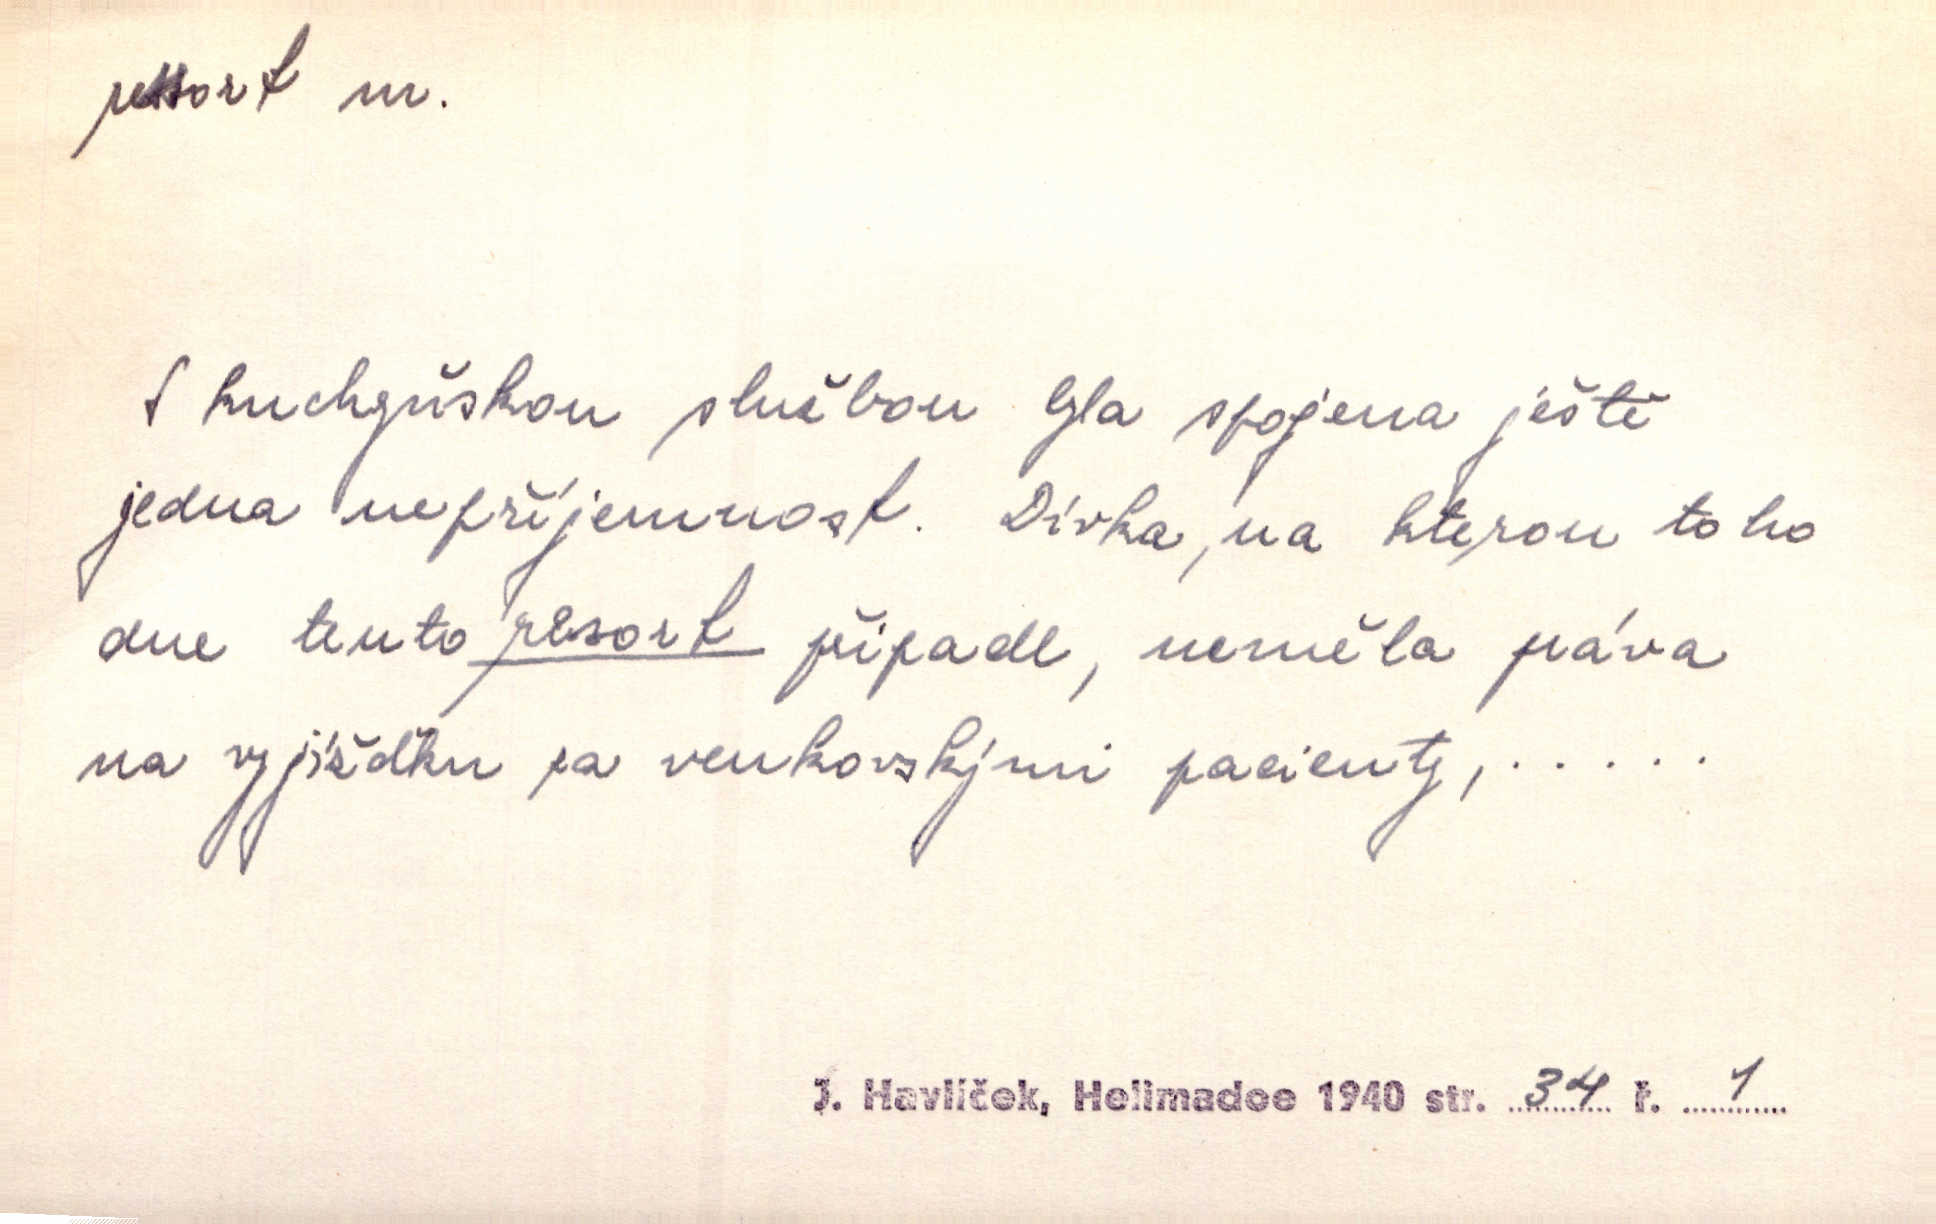 ressort m.
S kuchyňskou službou byla spojena ještě
jedna nepříjemnost. Dívka, na kterou toho
dne tento resort připadl, neměla práva
na vyjížďku za venkovskými pacienty, . . . . .
J. Havlíček, Helimadoe 1940 str. 34 ř. 1